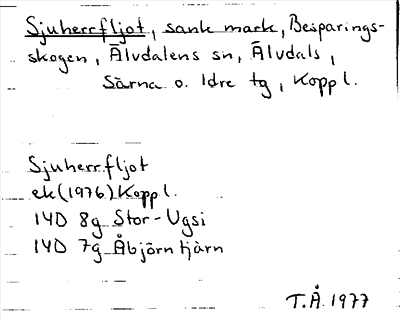 Sjuherrfljot, sank mark, Besparings-
skogen, Älvdalens sn, Älvdals,
Särna o. Idre tg, Koppl.
Sjuherrfljot
ek(1976)Koppl.
14D 8g Stor-Ugsi
14D 7g Åbjörntjärn
T.Å. 1977